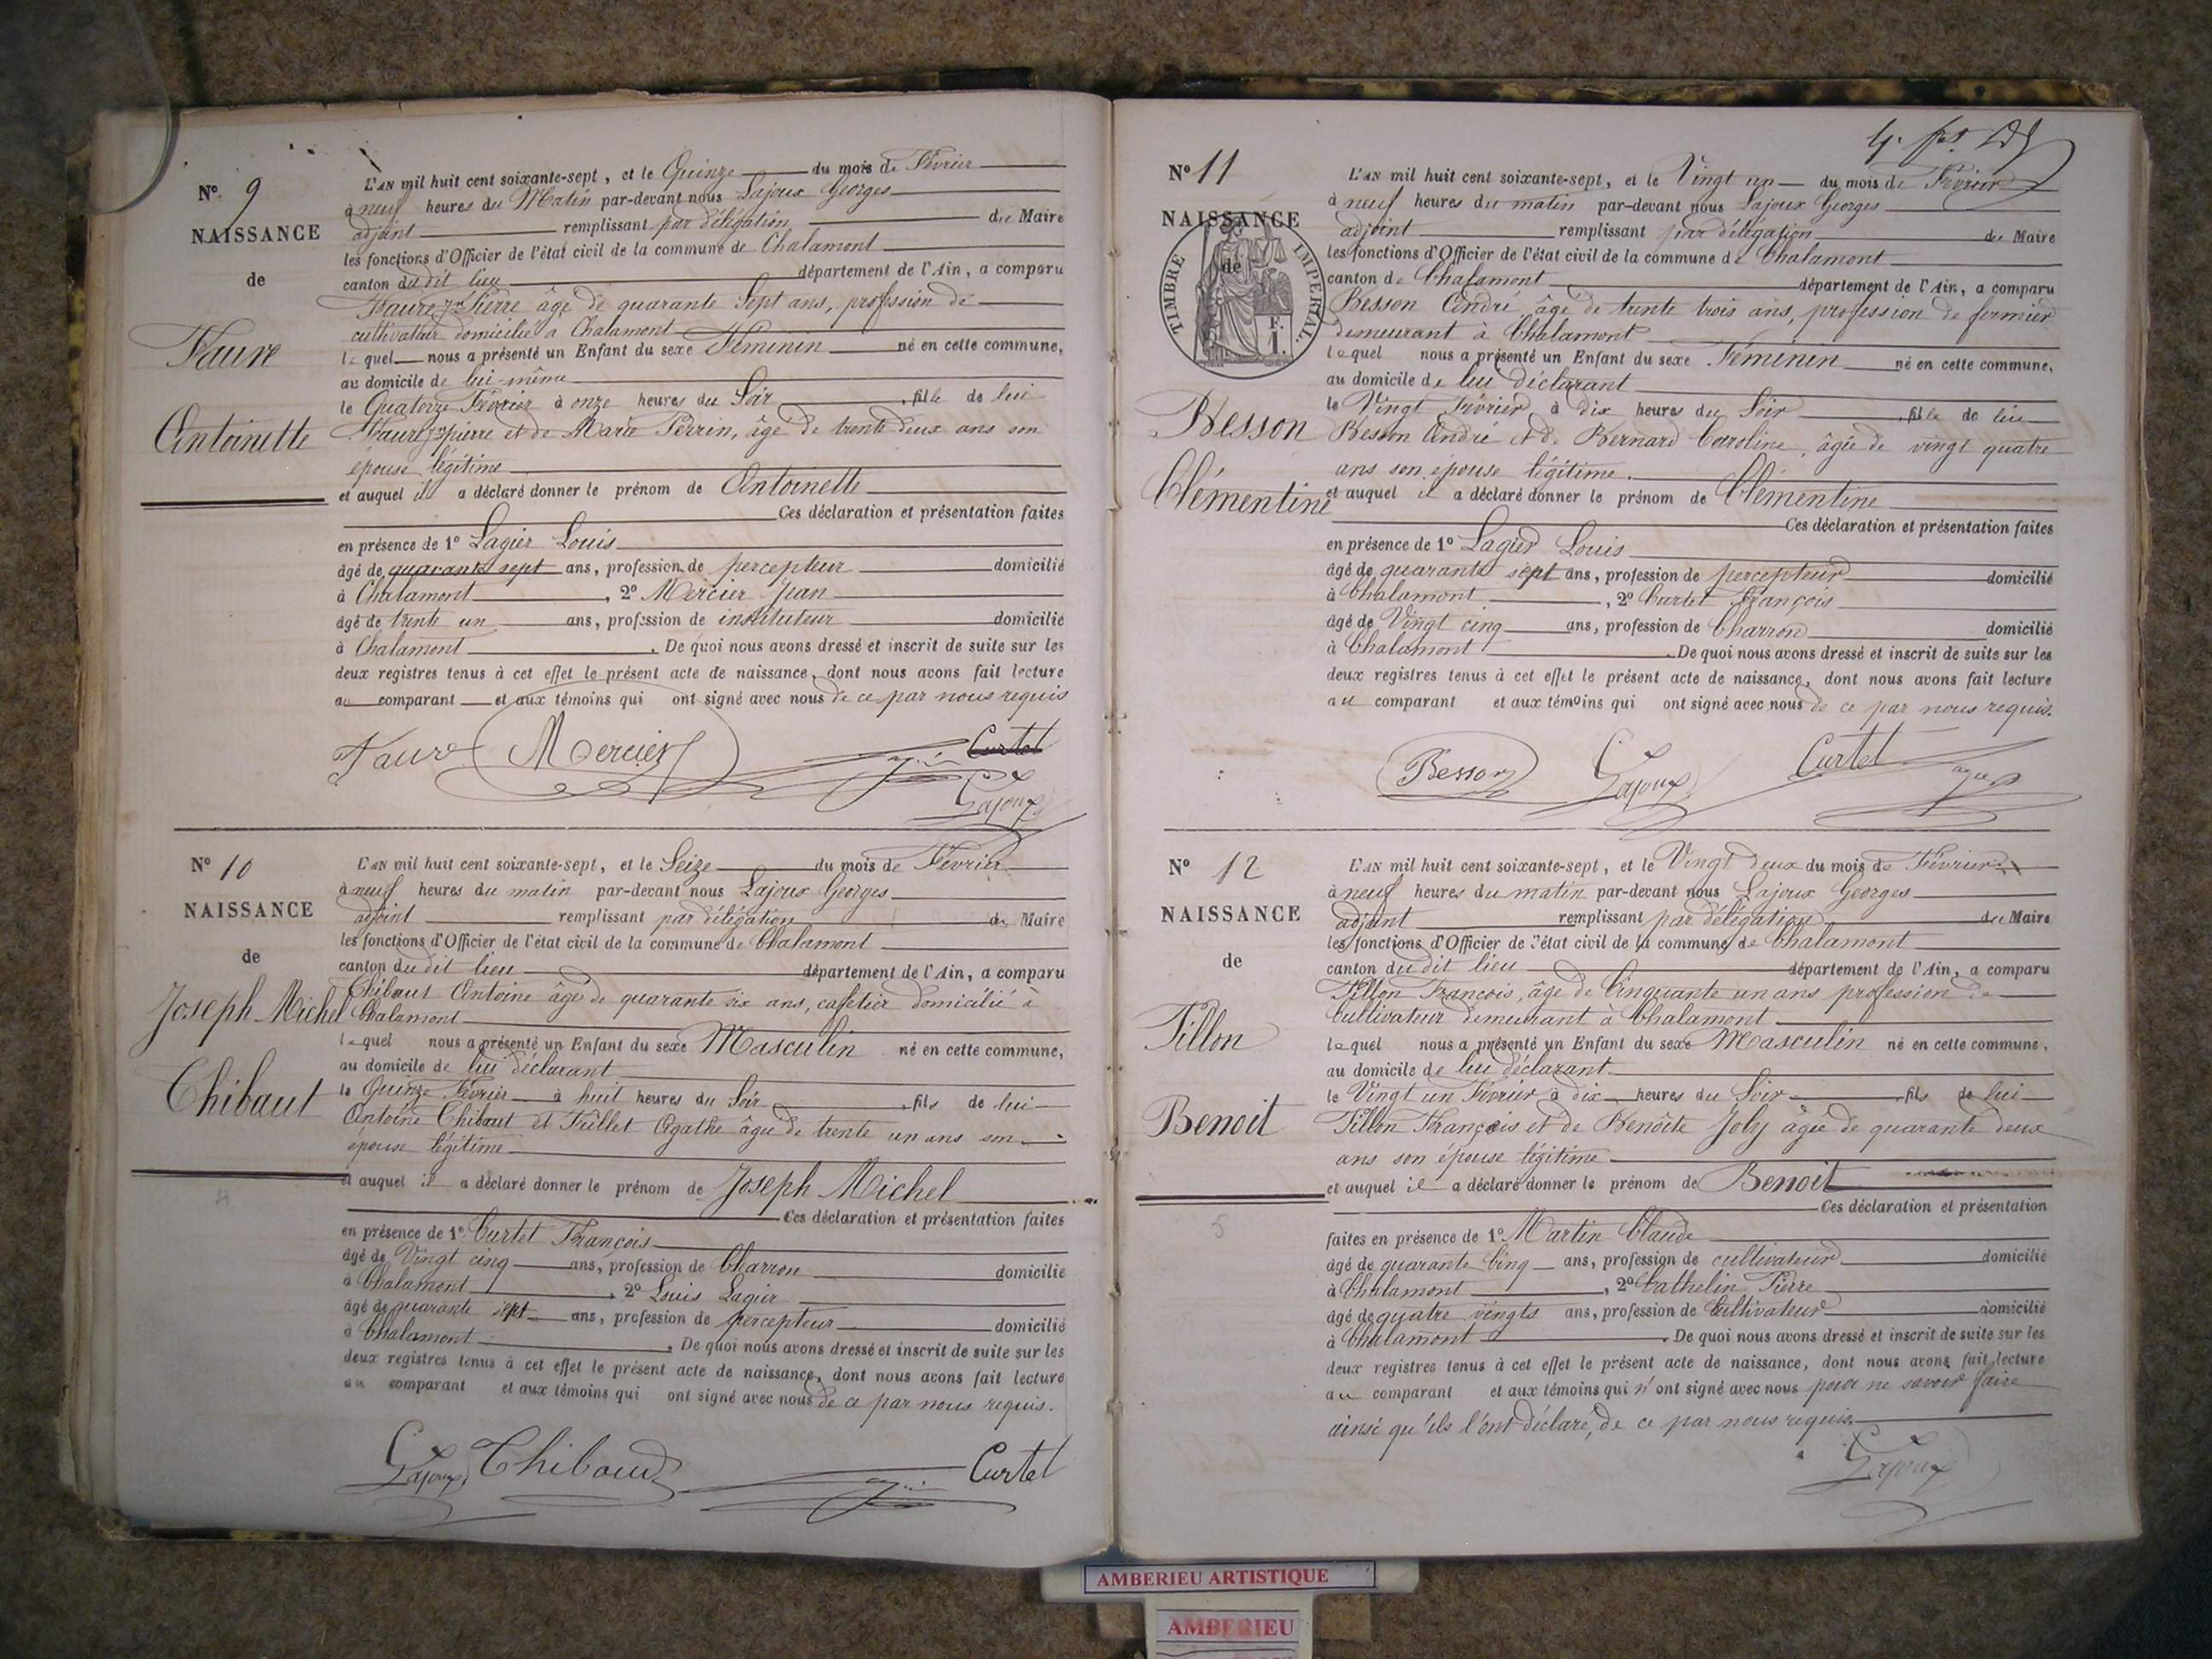 N° 9
NAISSANCE
de
Faure
Antoinette
L'AN mil huit cent soixante-sept, et le Quinze du mois de Février
à neuf heures du Matin par-devant nous Lajoux Georges
adjoint remplissant par délégation du Maire
les fonctions d'Officier de l'état civil de la commune de Chalamont
canton du dit lieu département de l'Ain, a comparu
Faure Pierre âgé de quarante Sept ans, profession de
cultivateur domicilié à Chalamont
lequel nous a présenté un Enfant du sexe Féminin né en cette commune,
au domicile de lui-même
le Quatorze Février à onze heures du Soir, fille de lui
Faure pierre et de Marie Perrin, âgé de trente deux ans son
épouse légitime
et auquel il a déclaré donner le prénom de Antoinette
Ces déclaration et présentation faites
en présence de 1° Lagier Louis
âgé de quarante sept ans, profession de percepteur domicilié
à Chalamont, 2° Mercier Jean
âgé de trente un ans, profession de instituteur domicilié
à Chalamont. De quoi nous avons dressé et inscrit de suite sur les
deux registres tenus à cet effet le présent acte de naissance, dont nous avons fait lecture
au comparant et aux témoins qui ont signé avec nous de ce par nous requis
Faure Mercier Curtet
Lajoux
N° 10
NAISSANCE
de
Joseph Michel
Thibaut
L'AN mil huit cent soixante-sept, et le Seize du mois de Février
à neuf heures du matin par-devant nous Lajoux Georges
adjoint remplissant par délégation de Maire
les fonctions d'Officier de l'état civil de la commune de Chalamont
canton du dit lieu département de l'Ain, a comparu
Thibaut Antoine âgé de quarante six ans, cafetier domicilié à
Chalamont
lequel nous a présenté un Enfant du sexe Masculin né en cette commune,
au domicile de lui déclarant
le Quinze Février à huit heures du Soir, fils de lui
Antoine Thibaut et Agathe âgée de trente un ans son
épouse légitime
et auquel il a déclaré donner le prénom de Joseph Michel
Ces déclaration et présentation faites
en présence de 1° Curtet François
âgé de Vingt cinq ans, profession de Charron domicilié
à Chalamont, 2° Louis Lagier
âgé de quarante sept ans, profession de percepteur domicilié
à Chalamont. De quoi nous avons dressé et inscrit de suite sur les
deux registres tenus à cet effet le présent acte de naissance, dont nous avons fait lecture
au comparant et aux témoins qui ont signé avec nous de ce par nous requis.
Lajoux Thibaud Curtet
N° 11
NAISSANCE
de
TIMBRE IMPERIAL
F.
1.
Besson
Clémentine
L'AN mil huit cent soixante-sept, et le Vingt un du mois de Février
à neuf heures du matin par-devant nous Lajoux Georges
adjoint remplissant par délégation du Maire
les fonctions d'Officier de l'état civil de la commune de Chalamont
canton de Chalamont département de l'Ain, a comparu
Besson André, âgé de trente trois ans, profession de fermier
demeurant à Chalamont
lequel nous a présenté un Enfant du sexe Féminin né en cette commune,
au domicile de lui déclarant
le Vingt Février à dix heures du Soir, fille de lui
Besson André et de Bernard Caroline, âgée de vingt quatre
ans son épouse légitime.
et auquel il a déclaré donner le prénom de Clémentine
Ces déclaration et présentation faites
en présence de 1° Lagier Louis
âgé de quarante sept ans, profession de percepteur domicilié
à Chalamont, 2° Curtet François
âgé de Vingt cinq ans, profession de Charron domicilié
à Chalamont. De quoi nous avons dressé et inscrit de suite sur les
deux registres tenus à cet effet le présent acte de naissance, dont nous avons fait lecture
au comparant et aux témoins qui ont signé avec nous de ce par nous requis.
Besson Lajoux Curtet
N° 12
NAISSANCE
de
Tillon
Benoit
L'AN mil huit cent soixante-sept, et le Vingt deux du mois de Février
à neuf heures du matin par-devant nous Lajoux Georges
adjoint remplissant par délégation du Maire
les fonctions d'Officier de l'état civil de la commune de Chalamont
canton du dit lieu département de l'Ain, a comparu
Tillon François, âgé de Cinquante un ans profession de
Cultivateur demeurant à Chalamont
lequel nous a présenté un Enfant du sexe Masculin né en cette commune,
au domicile de lui déclarant
le Vingt un Février à dix heures du Soir, fils de lui
Tillon François et de Benoîte Joly âgée de quarante deux
ans son épouse légitime
et auquel il a déclaré donner le prénom de Benoit
Ces déclaration et présentation
faites en présence de 1° Martin Claude
âgé de quarante Cinq ans, profession de cultivateur domicilié
à Chalamont, 2° Cathelin Pierre
âgé de quatre vingts ans, profession de Cultivateur domicilié
à Chalamont. De quoi nous avons dressé et inscrit de suite sur les
deux registres tenus à cet effet le présent acte de naissance, dont nous avons fait lecture
au comparant et aux témoins qui n'ont signé avec nous pour ne savoir faire
ainsi qu'ils l'ont déclaré, de ce par nous requis.
Lajoux
5
AMBERIEU ARTISTIQUE
AMBERIEU